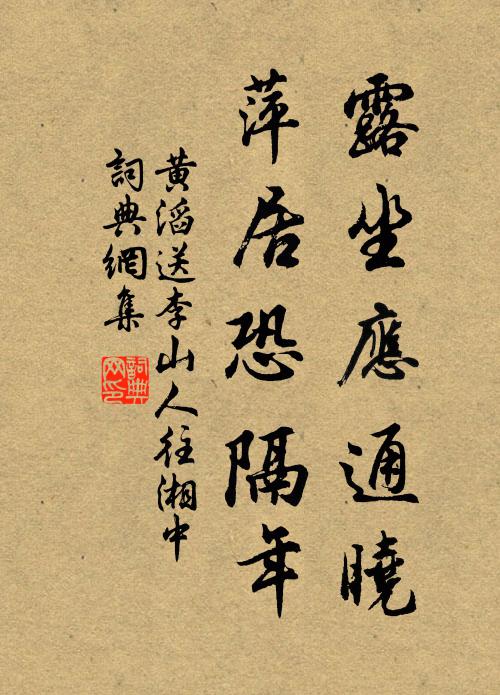 露坐應通曉
萍居恐隔年
黃滔送李山人往湘中
詞典網集
詞典網印